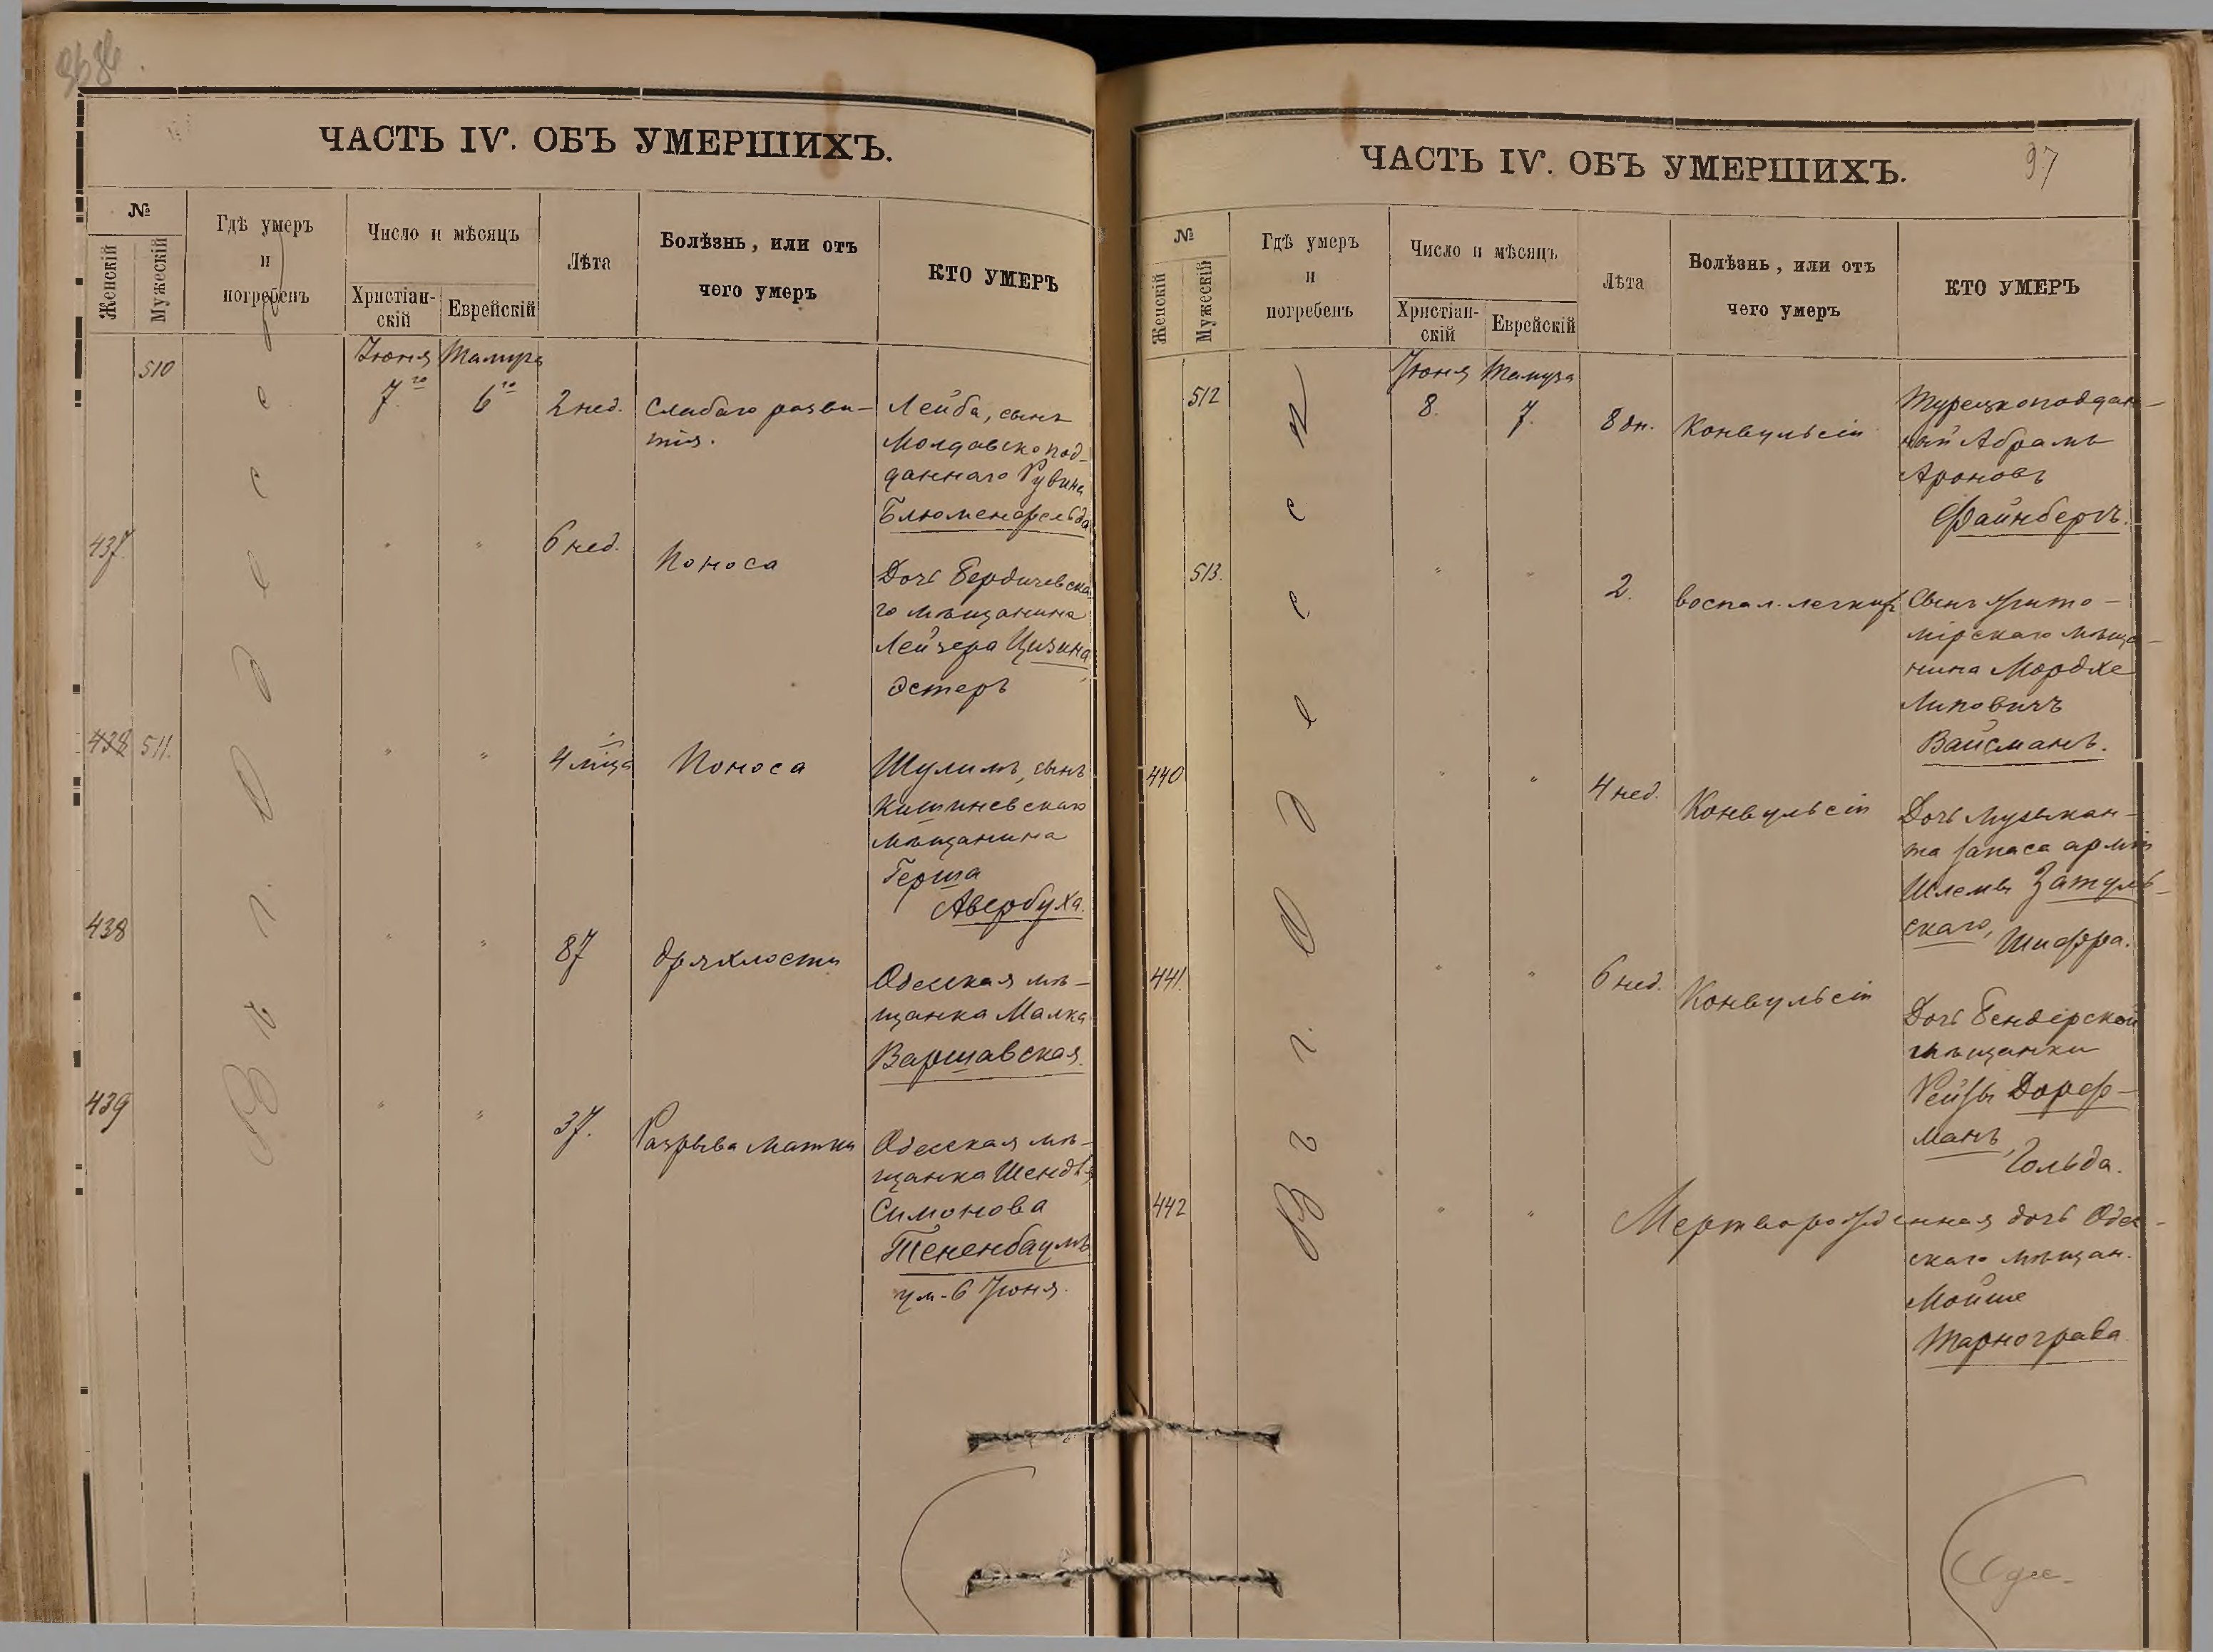 ЧАСТЬ IV. ОБЪ УМЕРШИХЪ.
№
Женскій
Мужескій
Гдѣ умеръ
и
погребенъ
Число и мѣсяцъ
Христіан-
скій
Еврейскій
Лѣта
Болѣзнь, или отъ
чего умеръ
КТО УМЕРЪ
Въ г. Одессе
510
Іюня Тамуза
7го 6го 2 нед. Слабаго разви-
тія.
Лейба, сынъ
Молдавскопод-
даннаго Рувина
Блюменфельда
437. " " 6 нед. Поноса
Дочь Бердичевска-
го мѣщанина
Лейзера Цизина
Эстеръ
438 511. " " 4 м-ца Поноса
Шулимъ, сынъ
Кишиневскаго
мѣщанина
Герша
Авербуха.
438 " " 87 дряхлости
Одесская мѣ-
щанка Малка
Варшавская.
439 " " 37. Разрыва матки
Одесская мѣ-
щанка Шендля
Симонова
Тененбаумъ
ум. 6 Іюня.
ЧАСТЬ IV. ОБЪ УМЕРШИХЪ.
97
№
Женскій
Мужескій
Гдѣ умеръ
и
погребенъ
Число и мѣсяцъ
Христіан-
скій
Еврейскій
Лѣта
Болѣзнь, или отъ
чего умеръ
КТО УМЕРЪ
Въ г. Одессѣ
512
Іюня Тамуза
8. 7. 8 дн. Конвульсіи
Турецкоподдан-
ный Абрамъ
Ароновъ
Файнбергъ.
513. " " 2. воспал. легкихъ
Сынъ Жито-
мірскаго мѣща-
нина Мордхе
Липовичъ
Вайсманъ.
440 " " 4 нед. Конвульсіи
Дочь музыкан-
та запаса арміи
Шлемы Затуль-
скаго, Шифра.
441. " " 6 нед. Конвульсіи
Дочь Бендерской
мѣщанки
Рейзы Дорф-
манъ,
Гольда.
442 " " Мертворожденная дочь Одес-
скаго мѣщан.
Мойше
Тарнограда